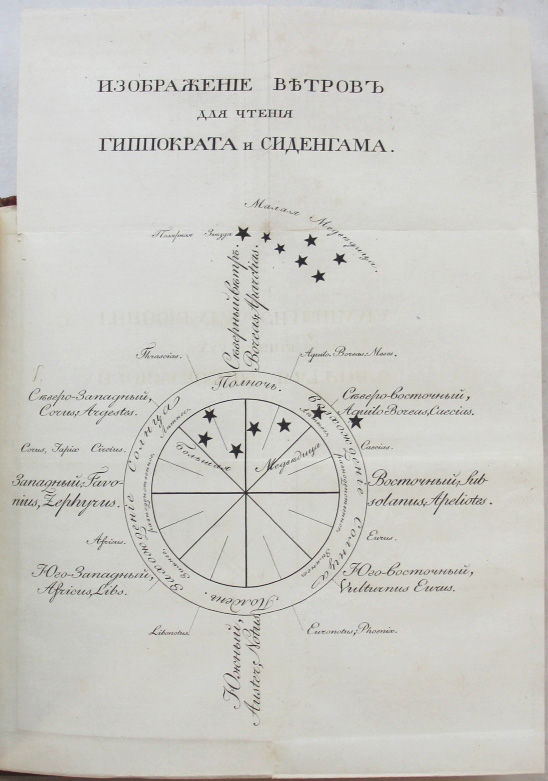 ИЗОБРАЖЕНІЕ ВѢТРОВЪ
ДЛЯ ЧТЕНІЯ
ГИППОКРАТА и СИДЕНГАМА.
Малая Медвѣдица.
Полярная Звѣзда
Сѣверный вѣтръ.
Boreas, Aparctias.
Thrascias.
Aquilo, Boreas, Meses.
Сѣверо-Западный,
Corus, Argestes.
Полночь.
Сѣверо-Восточный,
Aquilo Boreas, Caecias.
Захожденіе Солнца
Восхожденіе Солнца
Лѣтнее.
Лѣтнее.
Большая
Медвѣдица
Corus, Iapix Circius.
Caecias.
Западный, Favo-
nius, Zephyrus.
равноденственное.
равноденственное.
Восточный, Sub-
solanus, Apeliotes.
Africus.
Eurus.
Юго-Западный,
Africus, Libs.
Зимнее.
Зимнее.
Юго-Восточный,
Vulturnus Eurus.
Полдень.
Libonotus.
Euronotus, Phoenix.
Южный,
Auster, Notus